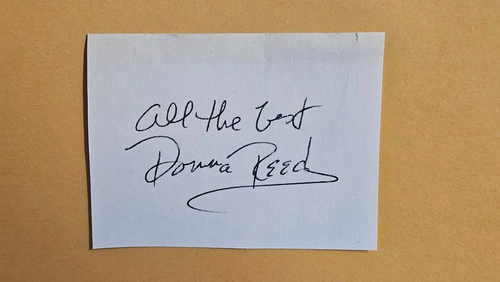 All the best
Donna Reed